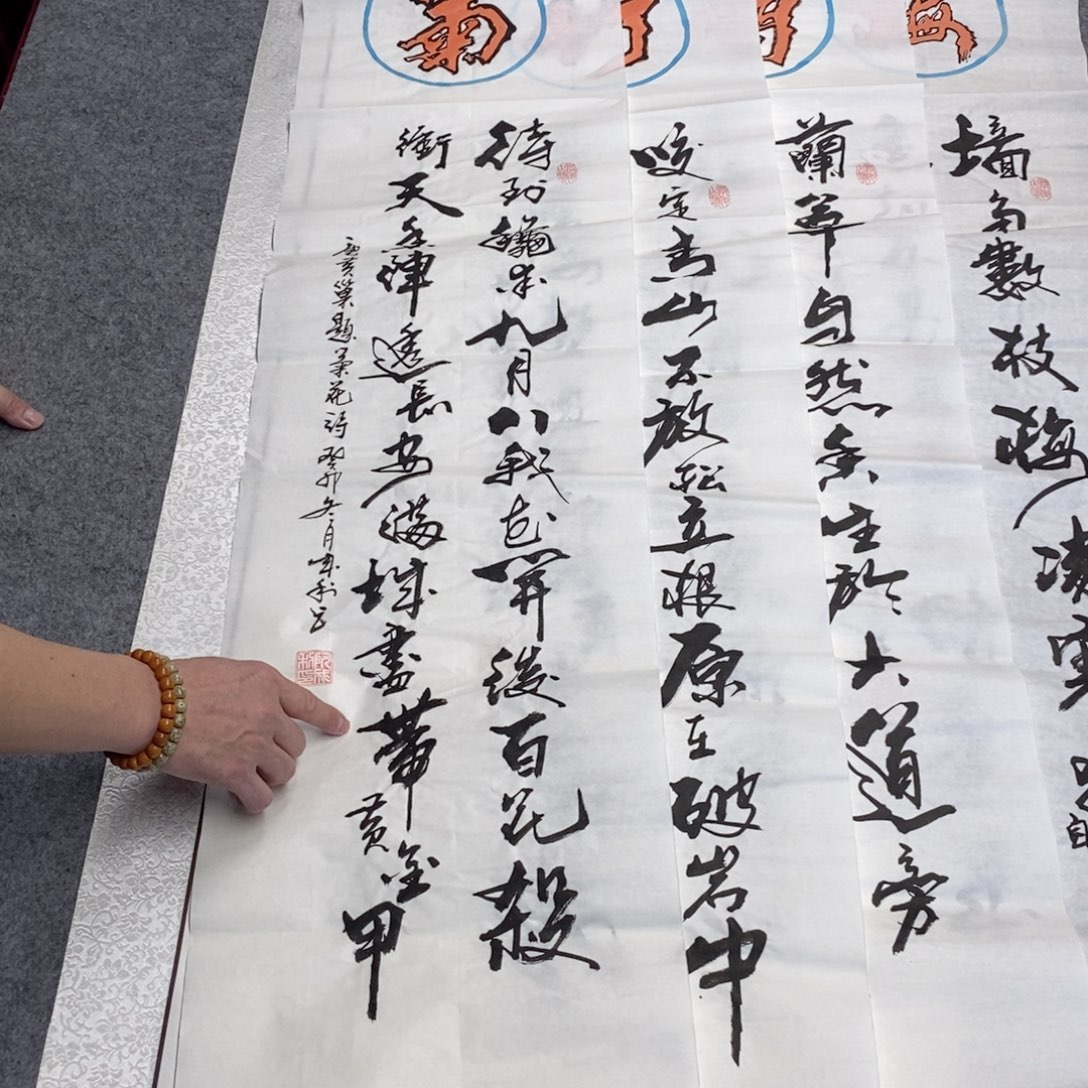 梅
菊
墙角數枝梅凌寒
蘭草自然香生於大道旁
咬定青山不放松立根原在破岩中
待到龝來九月八我花開後百花殺
衝天香陣透長安滿城盡帶黃金甲
黃巢題菊花詩癸卯冬月